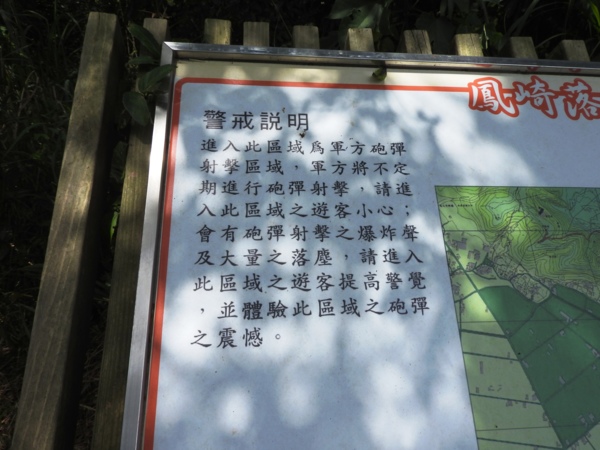 鳳崎落
警戒説明
進入此區域為軍方砲彈
射擊區域，軍方將不定
期進行砲彈射擊，請進
入此區域之遊客小心；
會有砲彈射擊之爆炸聲
及大量之落塵，請進入
此區域之遊客提高警覺
，並體驗此區域之砲彈
之震憾。